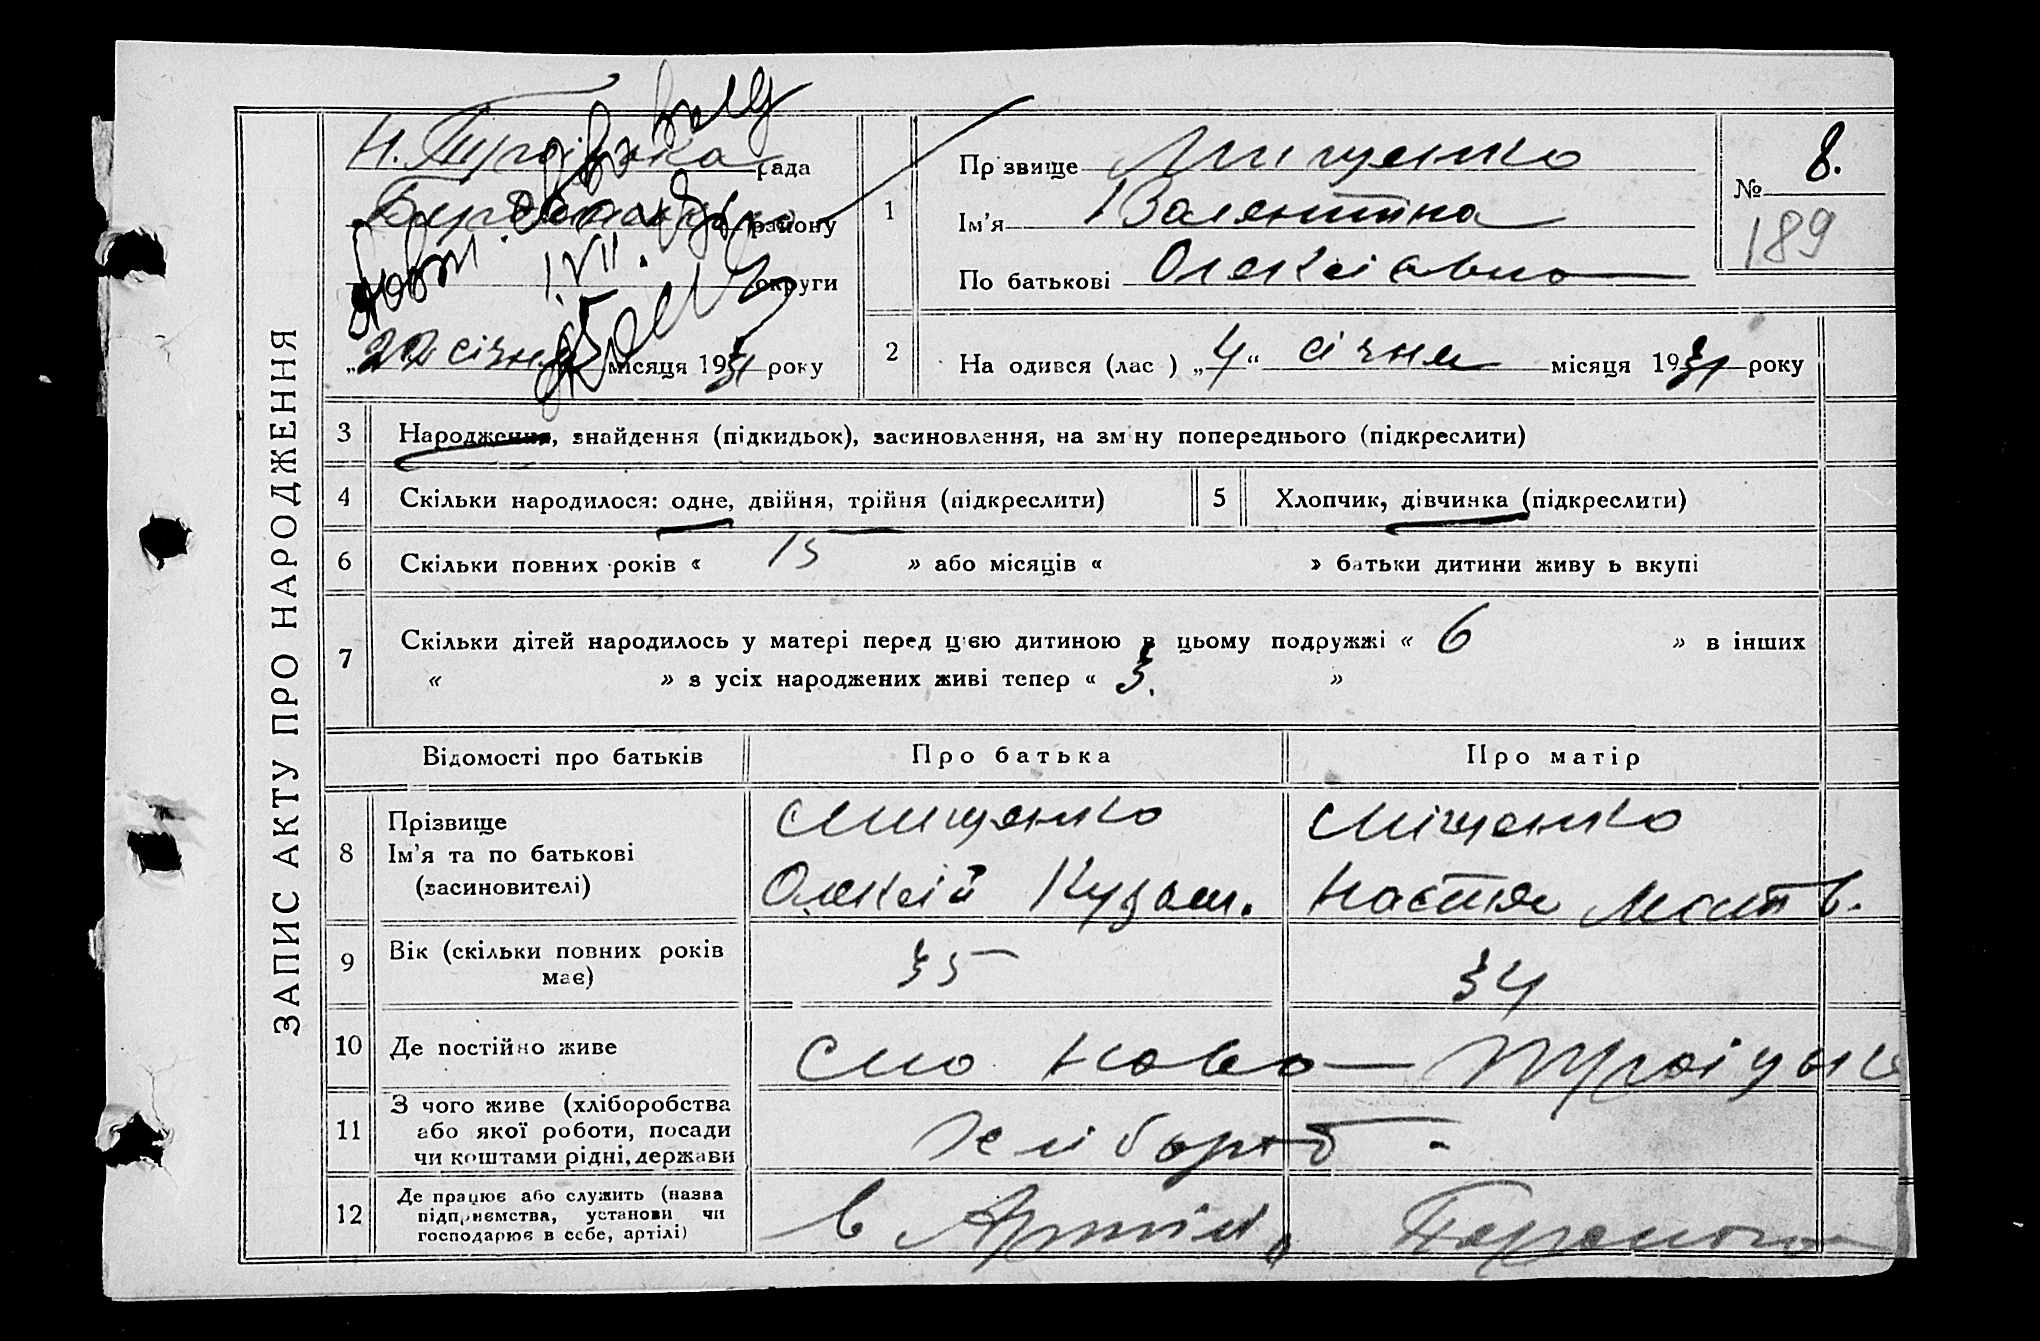 ЗАПИС АКТУ ПРО НАРОДЖЕННЯ
Н. Троїцька рада
району
округи
„22 січня місяця 1931 року
1
Прізвище Мищенко
Ім'я Валентина
По батькові Олексіівна
№ 8.
189
2
На одився (лас ) „4“ січня місяця 1931 року
3 Народження, знайдення (підкидьок), засиновлення, на зміну попереднього (підкреслити)
4 Скільки народилося: одне, двійня, трійня (підкреслити)
5 Хлопчик, дівчинка (підкреслити)
6 Скільки повних років « 15 » або місяців « » батьки дитини живу ь вкупі
7 Скільки дітей народилось у матері перед цією дитиною в цьому подружжі « 6 » в інших
« » з усіх народжених живі тепер « 3. »
Відомості про батьків Про батька Про матір
8 Прізвище
Ім'я та по батькові
(засиновителі)
Мищенко
Олексій Кузьм.
Міщенко
Настя Матв.
9 Вік (скільки повних років
має)
35
34
10 Де постійно живе
Ново-Троіцьке
11 З чого живе (хліборобства
або якої роботи, посади
чи коштами рідні, держави
Хлібороб -
12 Де працює або служить (назва
підприємства, установи чи
господарює в себе, артілі)
в Артілі